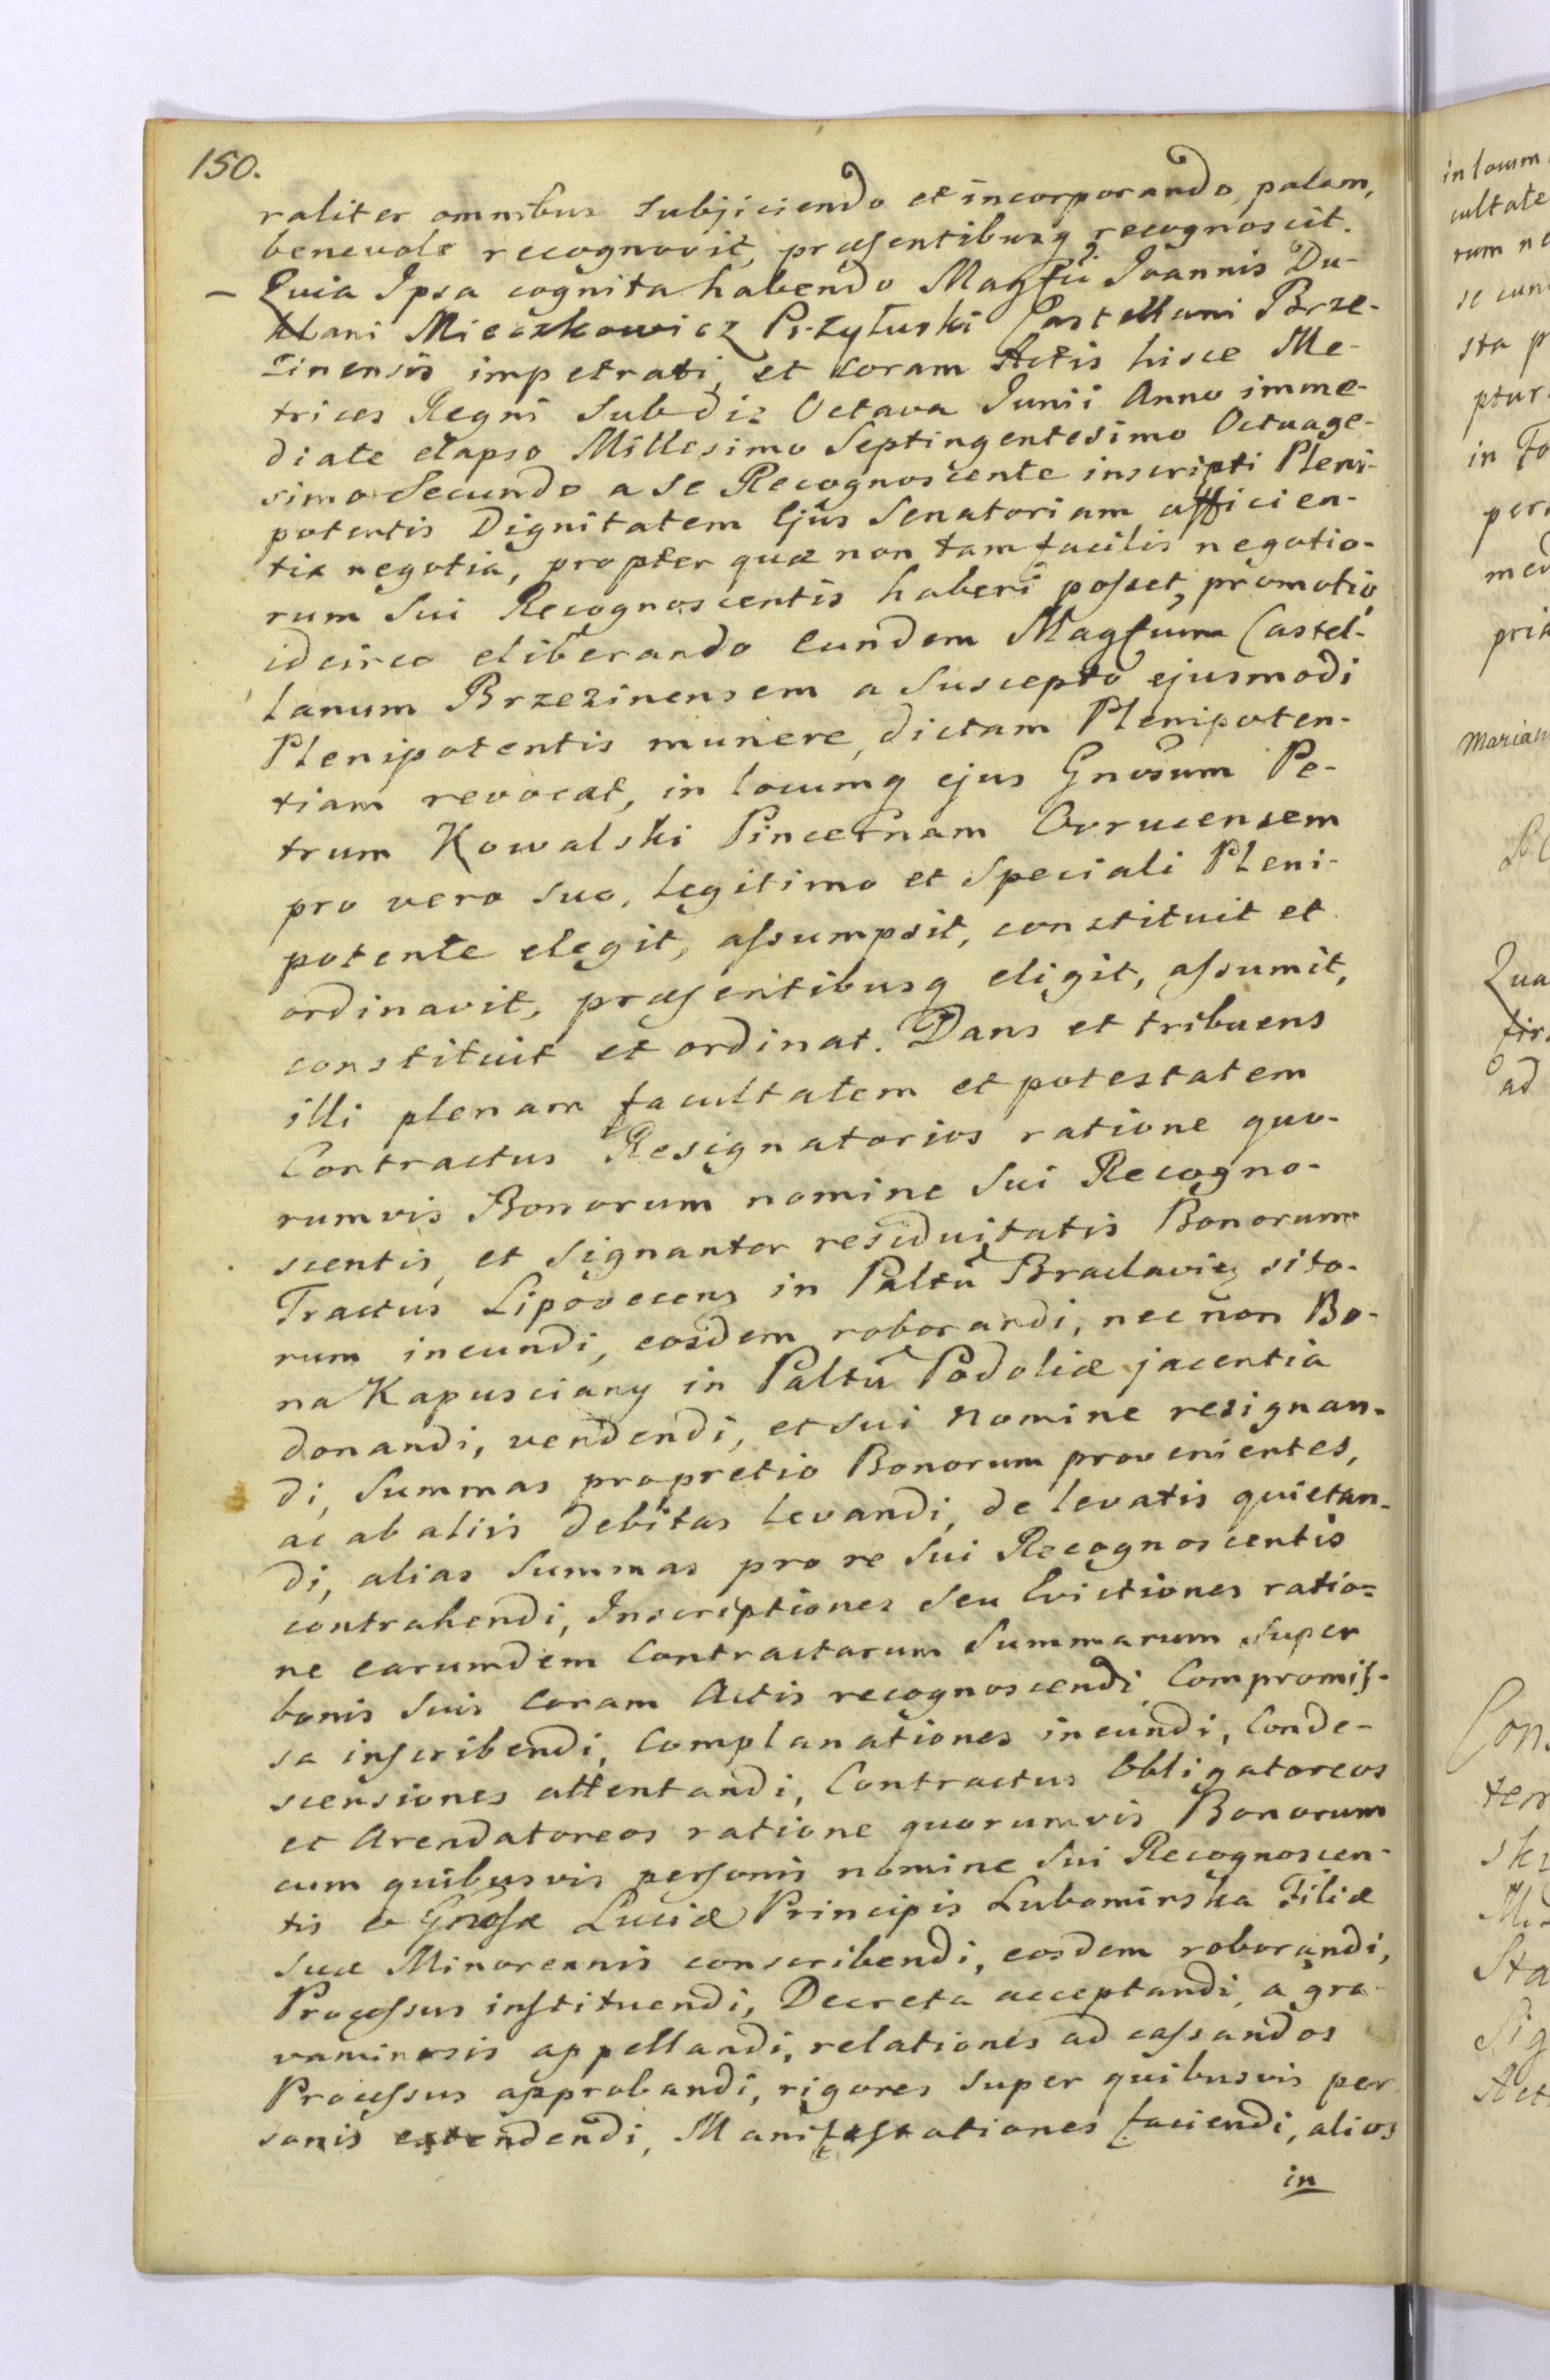 150.
raliter omnibus subjiciendo et incorporando, palam,
benevole recognovit, præsentibusq recognoscit.
— Quia Ipsa cognita habendo Magfci Joannis Du-
klani Mieczkowicz Przyłuski Castellani Brze-
zinensis impetrati, et coram Actis hisce Me-
trices Regni sub die Octava Junii Anno imme-
diate elapso Millesimo Septingentesimo Octuage-
simo Secundo a se Recognoscente inscripti Pleni-
potentis Dignitatem Ejus Senatoriam afficien-
tia negotia, propter quæ non tam facilis negotio-
rum sui Recognoscentis haberi posset, promotio,
idcirco eliberando eundem Magfcum Castel-
lanum Brzezinensem a suscepto ejusmodi
Plenipotentis munere, dictam Plenipoten-
tiam revocat, in locumq ejus Gnosum Pe-
trum Kowalski Pincernam Ovrucensem
pro vero suo, legitimo et speciali Pleni-
potente elegit, assumpsit, constituit et
ordinavit, præsentibusq eligit, assumit,
constituit et ordinat. Dans et tribuens
illi plenam facultatem et potestatem
Contractus Resignatorios ratione quo-
rumvis Bonorum nomine sui Recogno-
scentis, et signanter residuitatis Bonorum
Tractus Lipovecens in Paltu Braclaviæ sito-
rum ineundi, eosdem roborandi, nec non Bo-
na Kapusciany in Paltu Podoliæ jacentia
donandi, vendendi, et sui nomine resignan-
di, Summas propretio Bonorum provenientes,
ac ab aliis debitas levandi, de levatis quietan-
di, alias Summas pro re sui Recognoscentis
contrahendi, Inscriptiones seu Evictiones ratio=
ne earumdem contractarum Summarum super
bonis suis coram Actis recognoscendi, Compromis-
sa inscribendi, Complanationes ineundi, Conde-
scensiones attentandi, Contractus Obligatoreos
et Arendatoreos ratione quorumvis Bonorum
cum quibusvis personis nomine sui Recognoscen-
tis & Gnosæ Luciæ Principis Lubomirska Filiæ
suæ Minorennis conscribendi, eosdem roborandi,
Processus instituendi, Decreta acceptandi, a gra-
vaminosis appellandi, relationes ad cassandos
Processus approbandi, rigores super quibusvis per
sonis extendendi, Manifestationes faciendi, alios
in